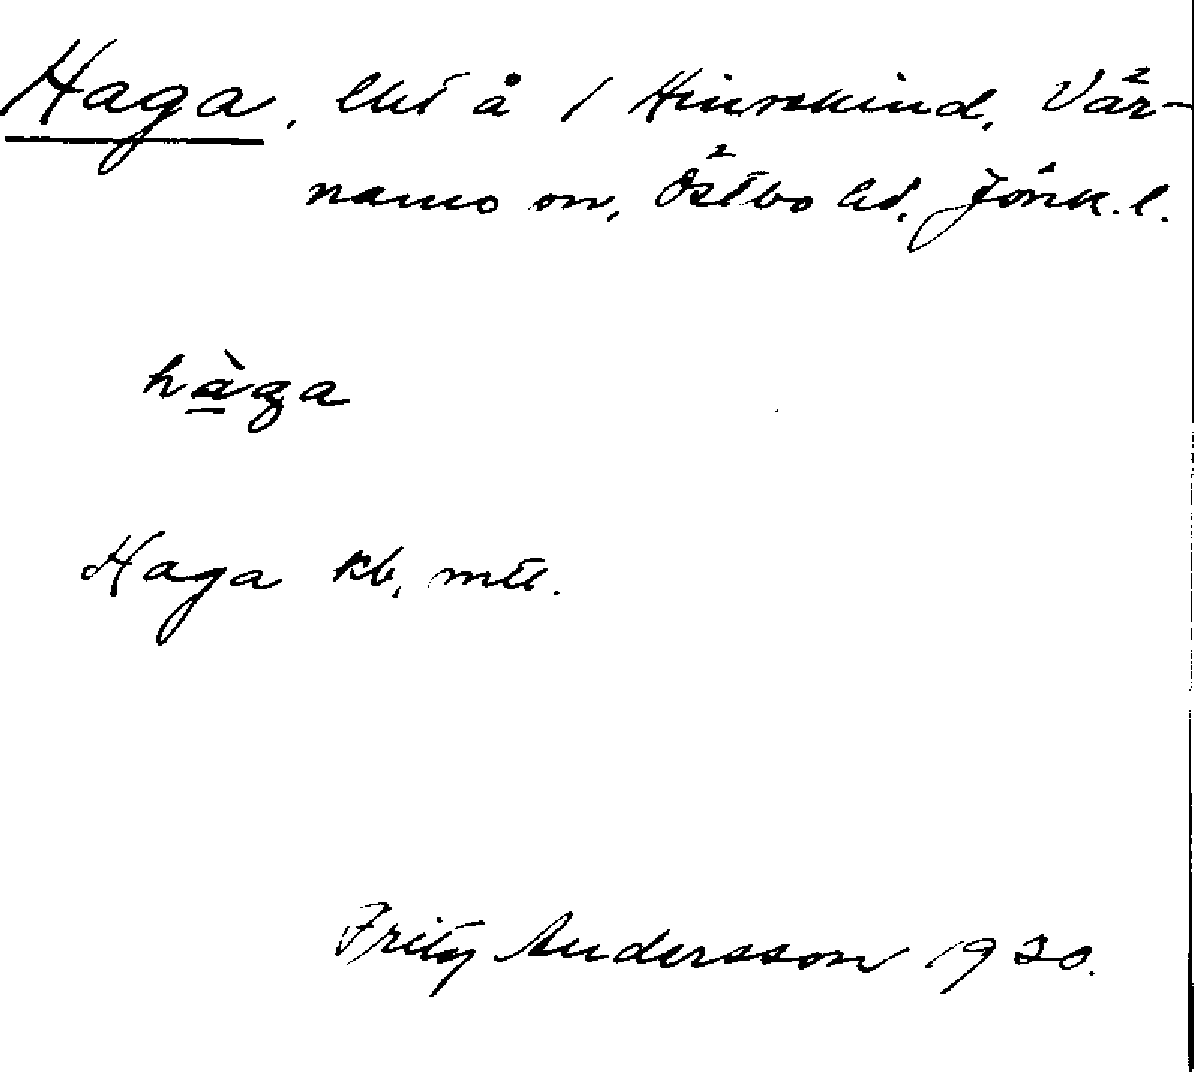 Haga, lht å 1 Hinrskind, Vär-
namo sn, Östbo hd, Jönk. l.
hàga
Haga kb, mtl.
Fritz Andersson 1930.